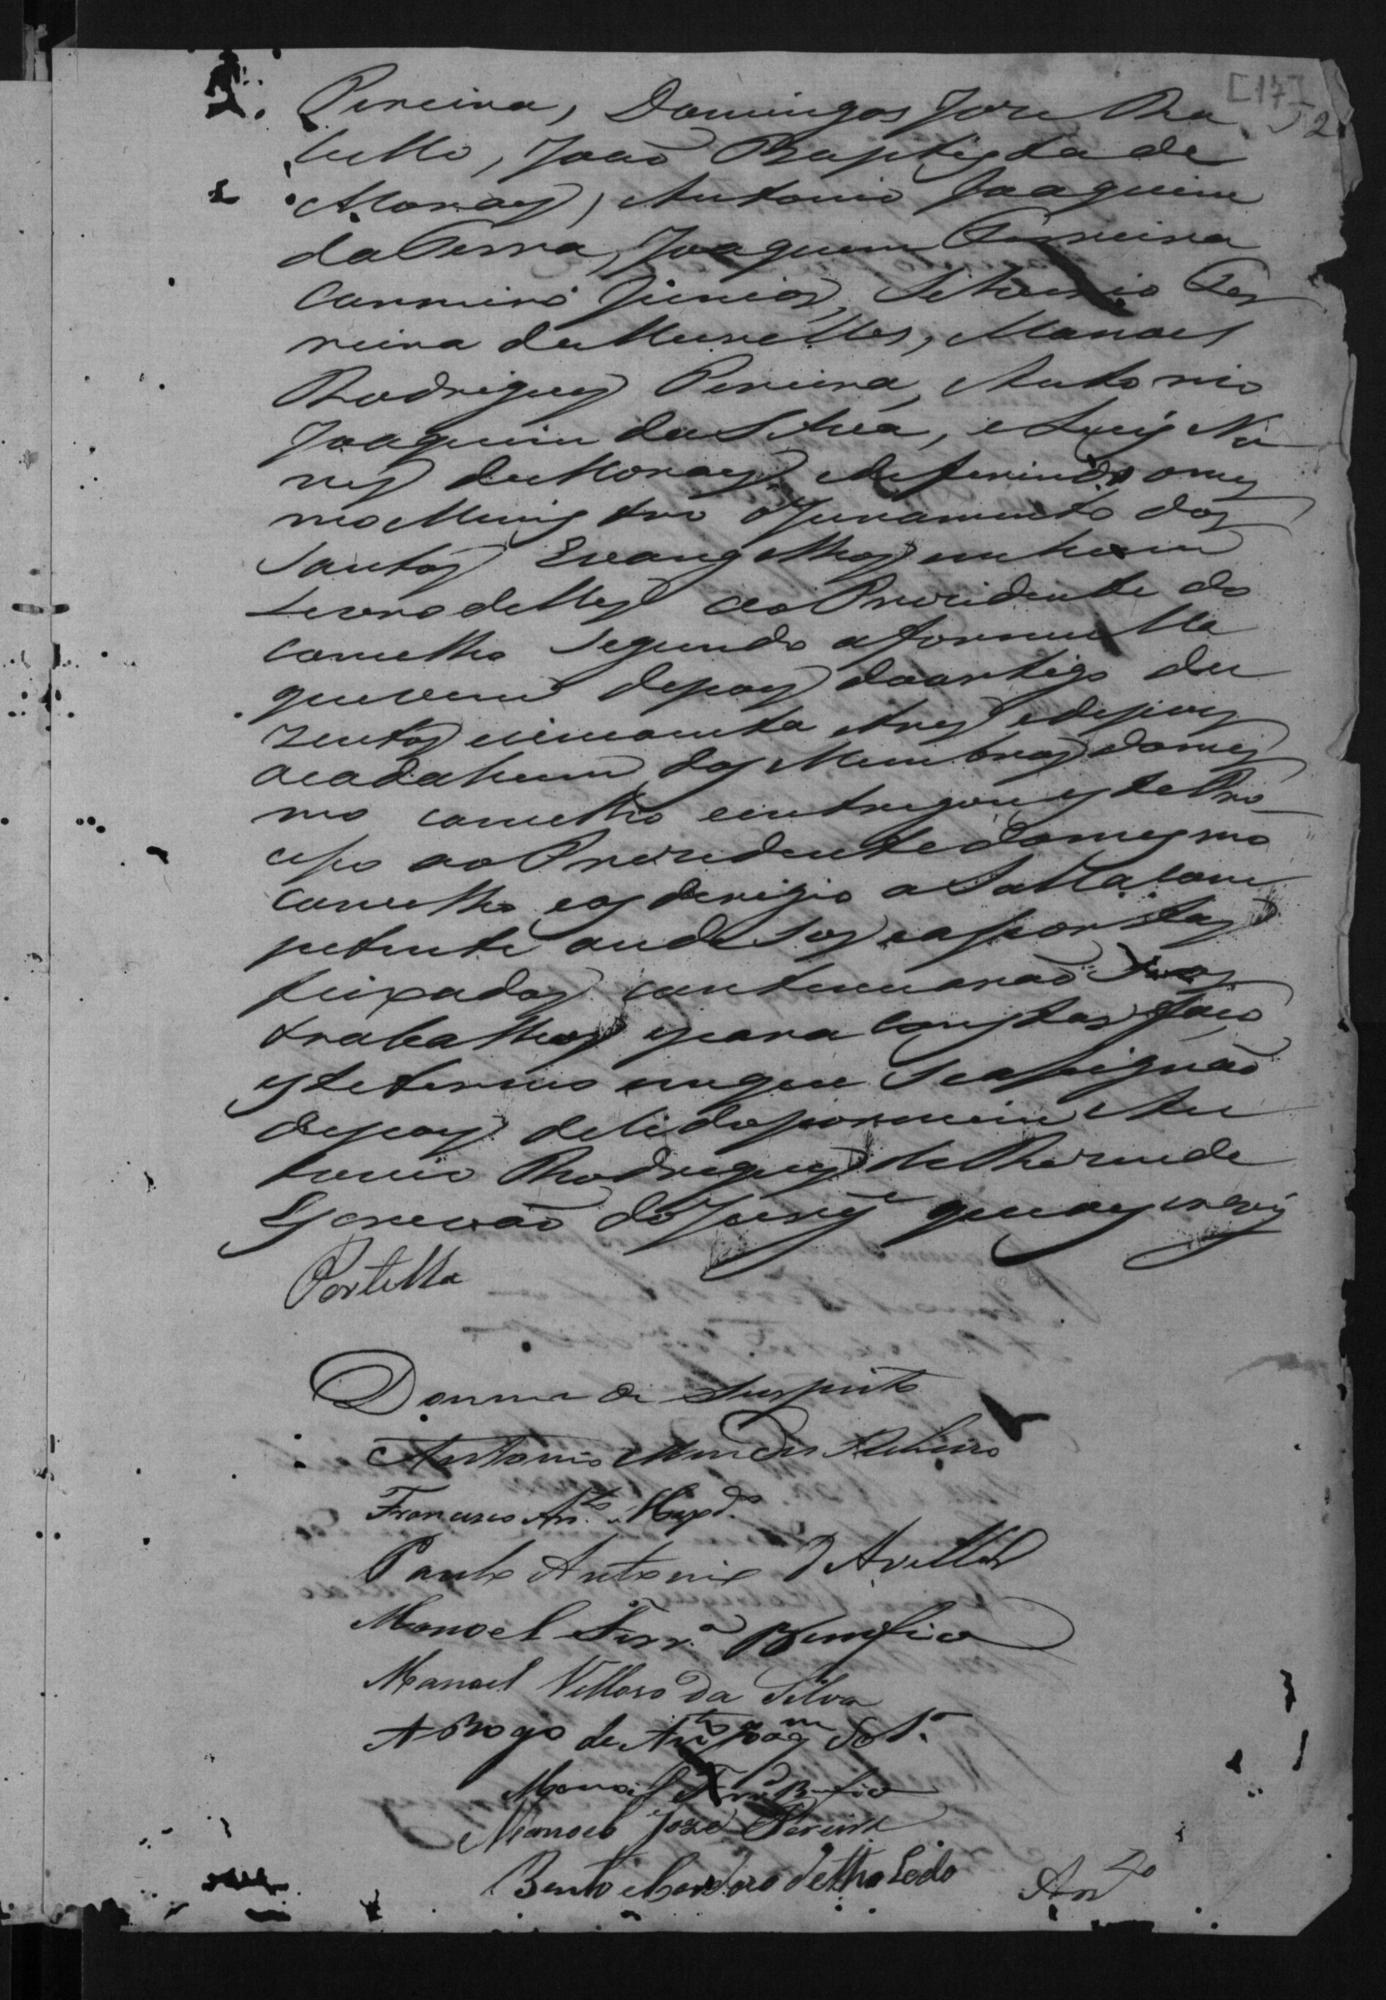 [17]
2
Pereira, Domingos Jose Ra
bello, João Baptista de
Moraes, Antonio Joaquim
da Serra, Joaquim Ferreira
Carneiro Junior, Silverio Fer
reira de Meirelles, Manoel
Rodrigues Pereira, Antonio
Joaquim da Silva, e Luis Nu
nes de Moraes, e deferindo o mes
mo Menistro o Juramento dos
Santos Evangelhos em hum
Levero delles ao Prezidente do
conselho segundo a formulla
que vem depois do artigo du
zentos cincoenta e tres e depois
a cada hum dos Membros do mes
mo conselho entregou este Pro
cesso ao Prezidente do mesmo
conselho e os derigio a Salla com
petente onde sos e a portas
feixadas continuarão seus
trabalhos e para constar faço
este termo em que se assignão
depois de lido por mim An
tonio Rodrigues de Rezende
Escrevão do Jury que o escrevy
Portella
Antonio Mendes Ribeiro
Francisco Anto.
Paulo Antonio d'Avellar
Manoel Ferra. Bemfica
Manoel Vellozo da Silva
A Rogo de Anto Joaqm Sa.
Manoel Ferra. Bemfica
Manoel José Pereira
Bento Cardozo de Tholedo
Anto